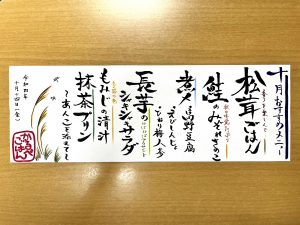 十月おすすめメニュー
松茸ごはん
鮭のみぞれきのこ
煮〆
高野豆腐
えびしんじょ
ひねり梅人参
長芋の
シャキシャキサラダ
もみじの清汁
抹茶プリン
〜あんこを添えて〜
令和四年
十月十四日(金)